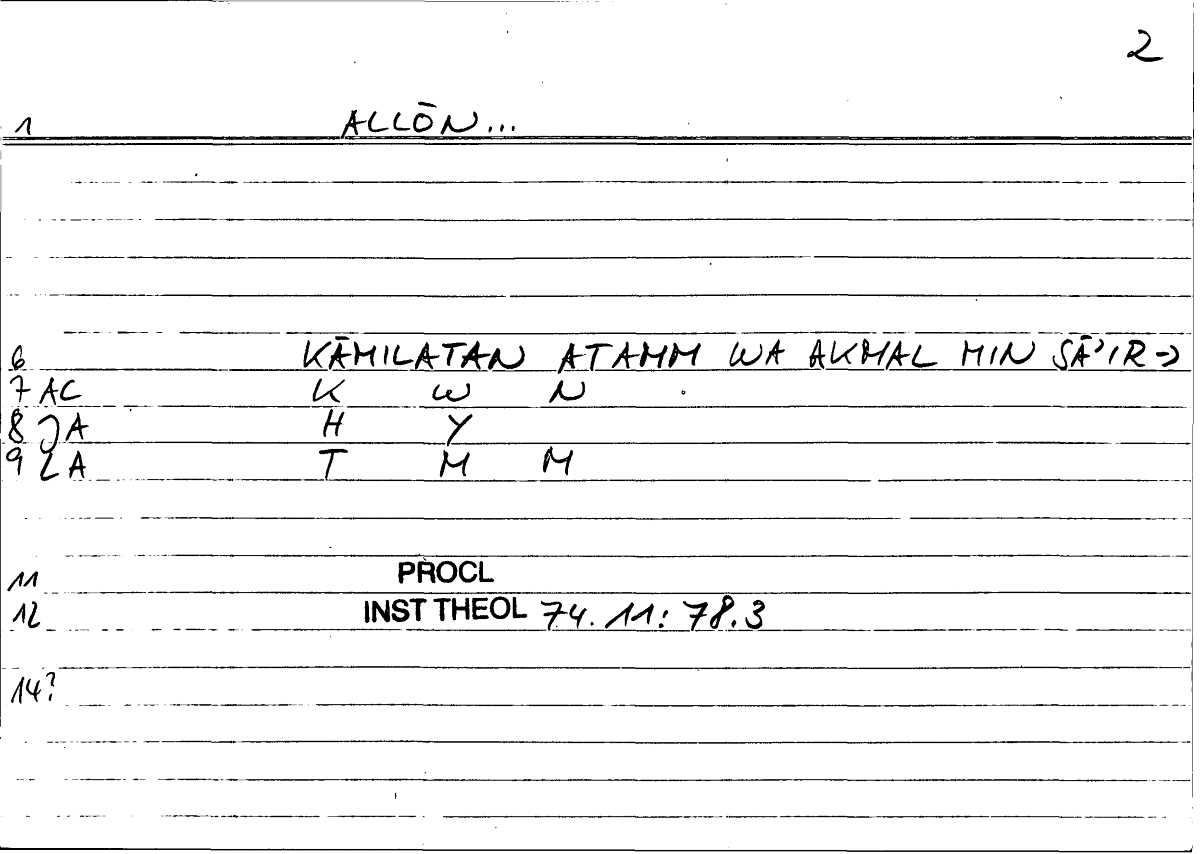 2
1 ALLŌN...
6 KĀMILATAN ATAMM WA AKMAL MIN SĀʾIR→
7 AC K W N
8 JA H Y
9 LA T M M
11 PROCL
12 INST THEOL 74.11: 78.3
14?